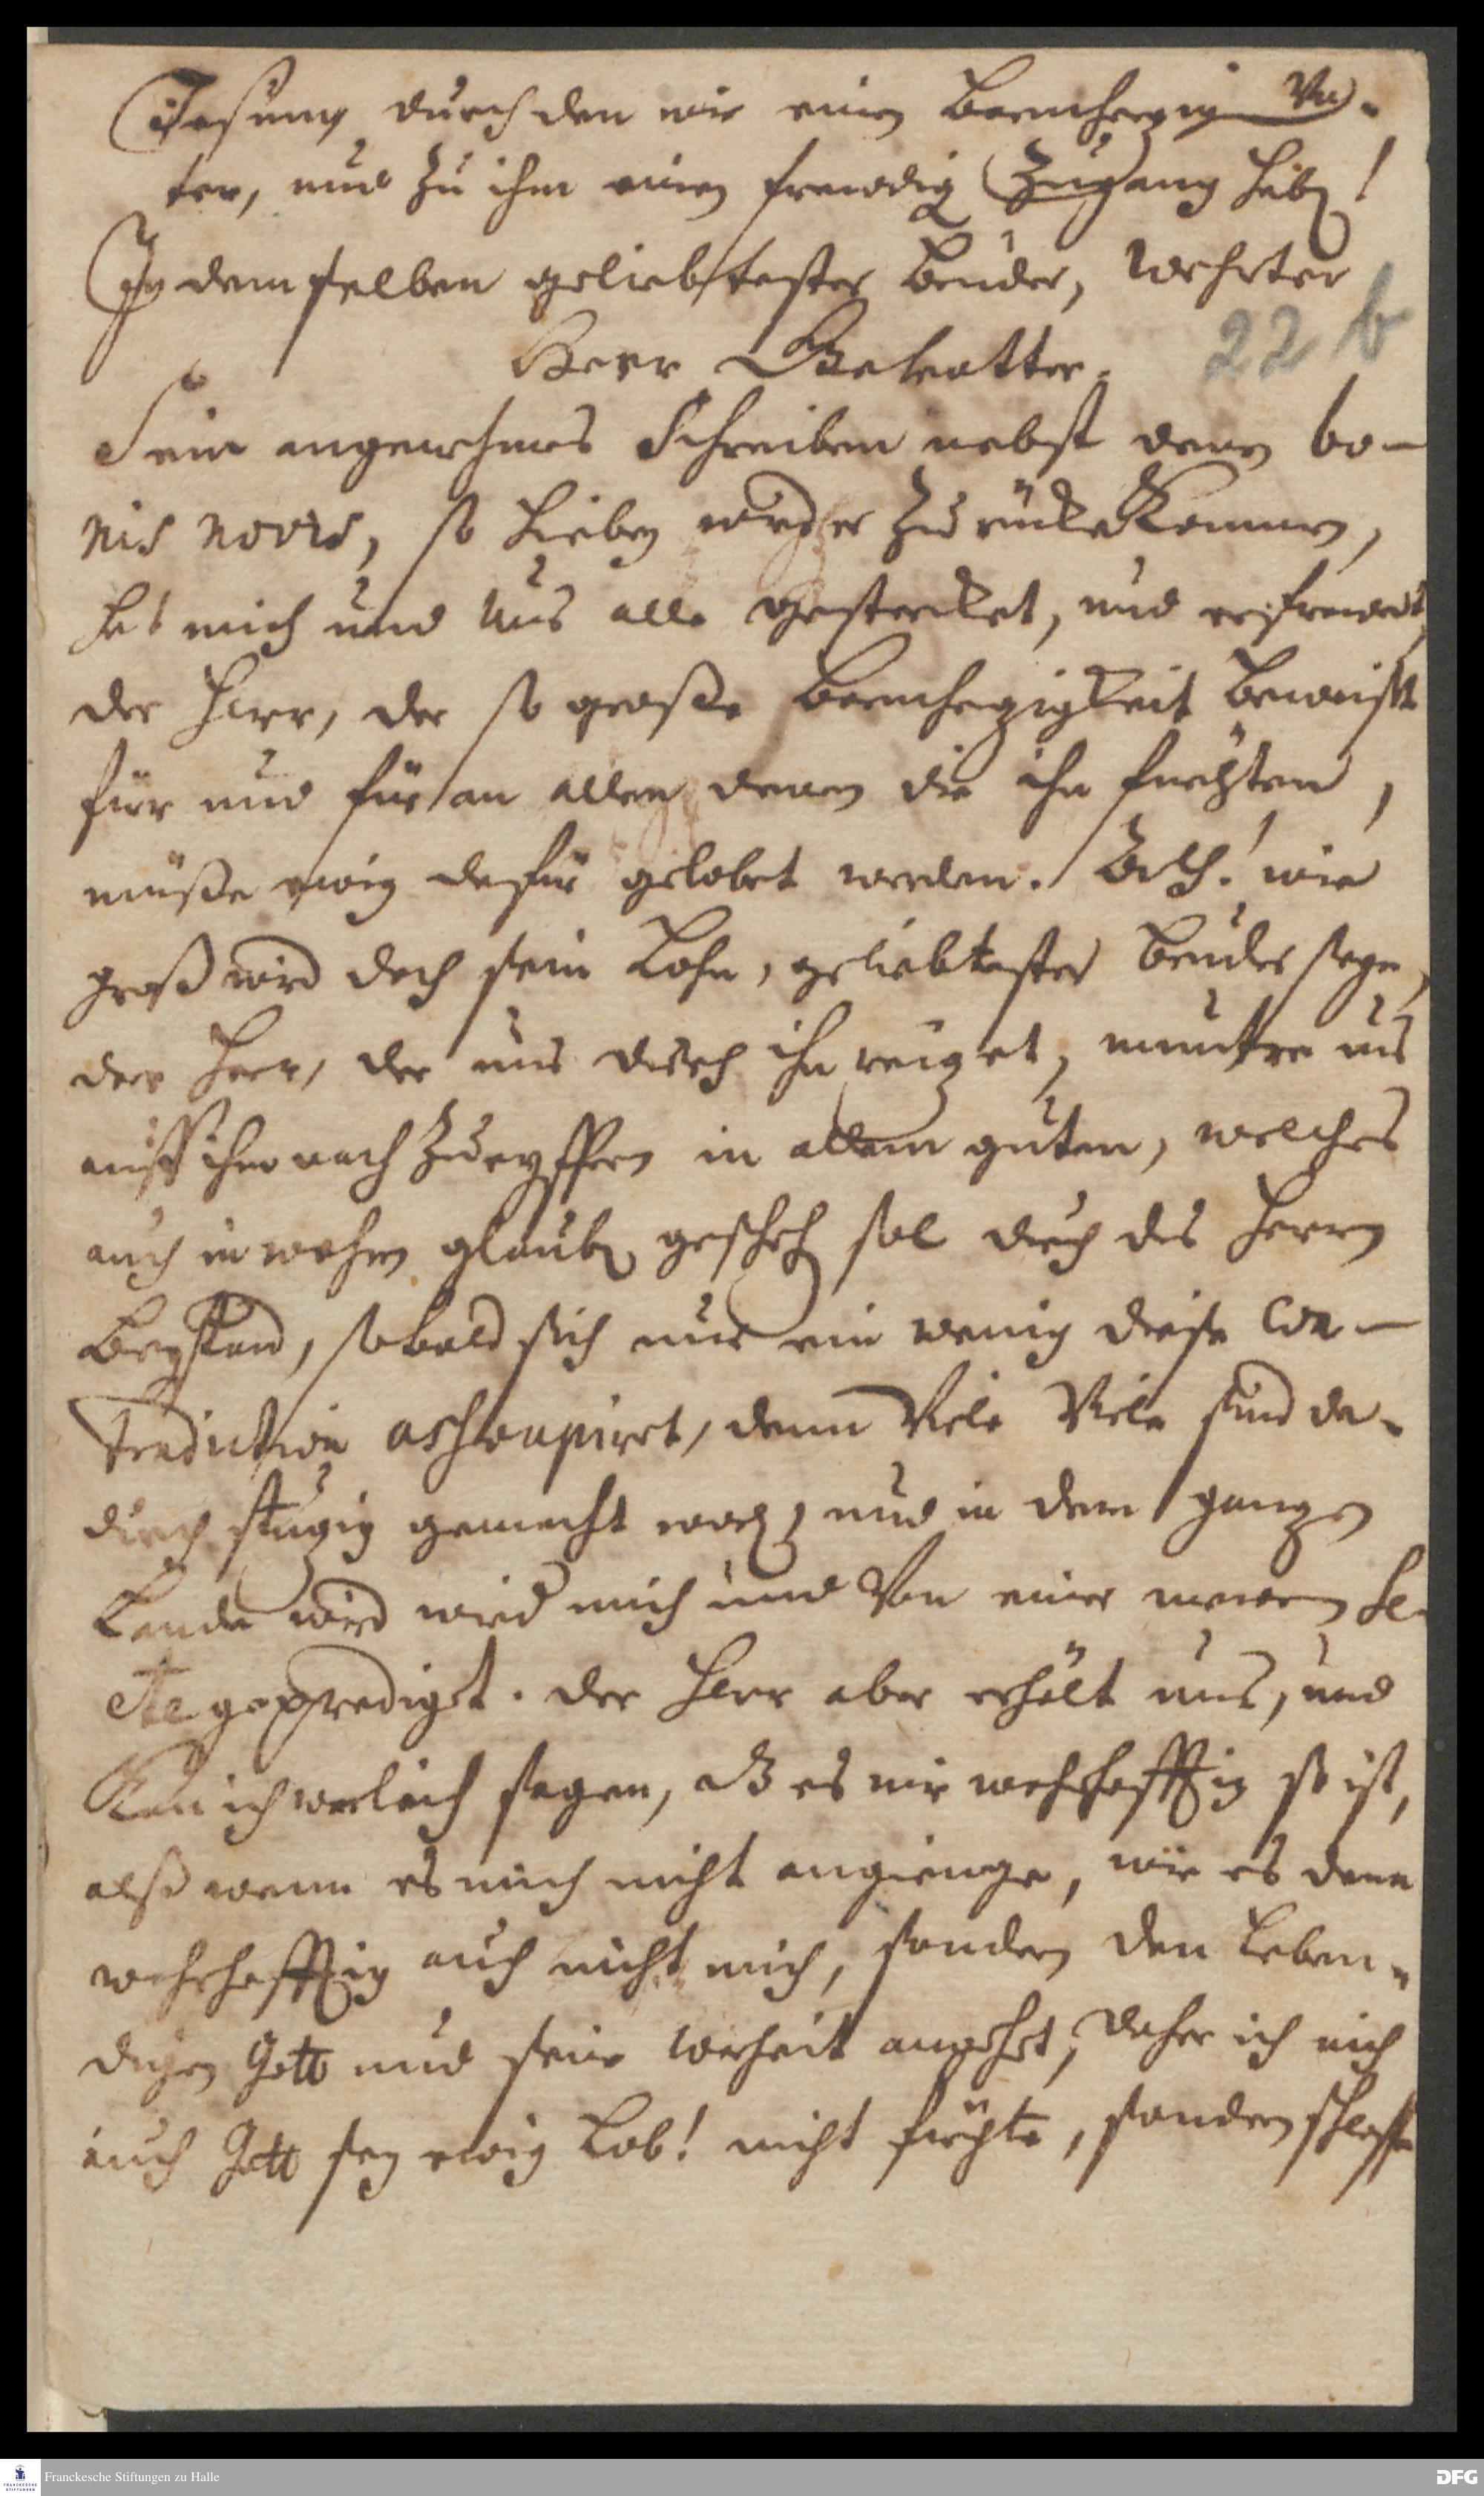 Jesum, durch den wir einen Barmhertzigen Va-
ter, und zu ihm einen freudig Zugang habn!
In demselben geliebtester Bruder, Wehrter
Herr Gevatter.
22 b
Sein angenehmes Schreiben nebst denen bo-
nis novis, so hiebey wieder zurücke Kommen,
hat mich und uns alle gestercket, und erfreuet,
der Herr, der so große Barmhertzigkeit beweist
für und für an allen denen die ihn furchten,
müße ewig dafür gelobet werden. Ach! wie
groß wird doch sein Lohn, geliebtester Bruder seyn,
der Herr, der uns durch ihn reitzet, muntre uns
auff ihm nach zueyffern in allem guten, welches
auch in wahren glaubn gescheh sol durch des Herrn
Beystand, sobald sich nur ein wenig diese Con-
tradiction, denn Viele Viele sind da-
durch stutzig gemacht word, und in dem gantzen
Lande wird wird mich und von einer neuen Se-
cte geprediget. der Herr aber erhält uns, und
Kan ich warlich sagen, daß es mir wahrhafftig so ist,
alß wenn es mich nicht angienge, wie es denn
wahrhafftig auch nicht mich, sondern den Leben-
digen Gott und seine Warheit angehet, daher ich mich
auch Gott sey ewig Lob! nicht fürchte, sondern schlaffe
Franckesche Stiftungen zu Halle
DFG